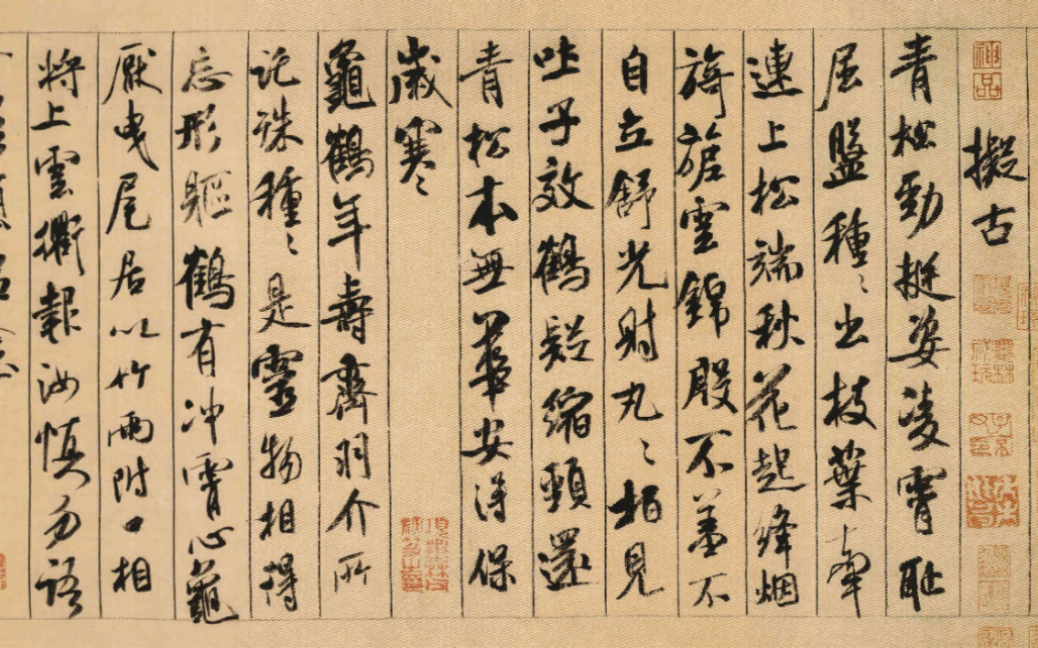 神品
擬古
青松勁挺姿凌霄恥
屈盤種〻出枝葉牽
連上松端秋花起絳烟
旖旎雲錦殷不羞不
自立舒光射丸〻柏見
吐子效鶴疑縮頸還
青松本無華安得保
歲寒〻
龜鶴年壽齊羽介所
託殊種〻是靈物相得
忘形軀鶴有沖霄心龜
厭曳尾居以竹兩附口相
將上雲衢報汝慎勿語